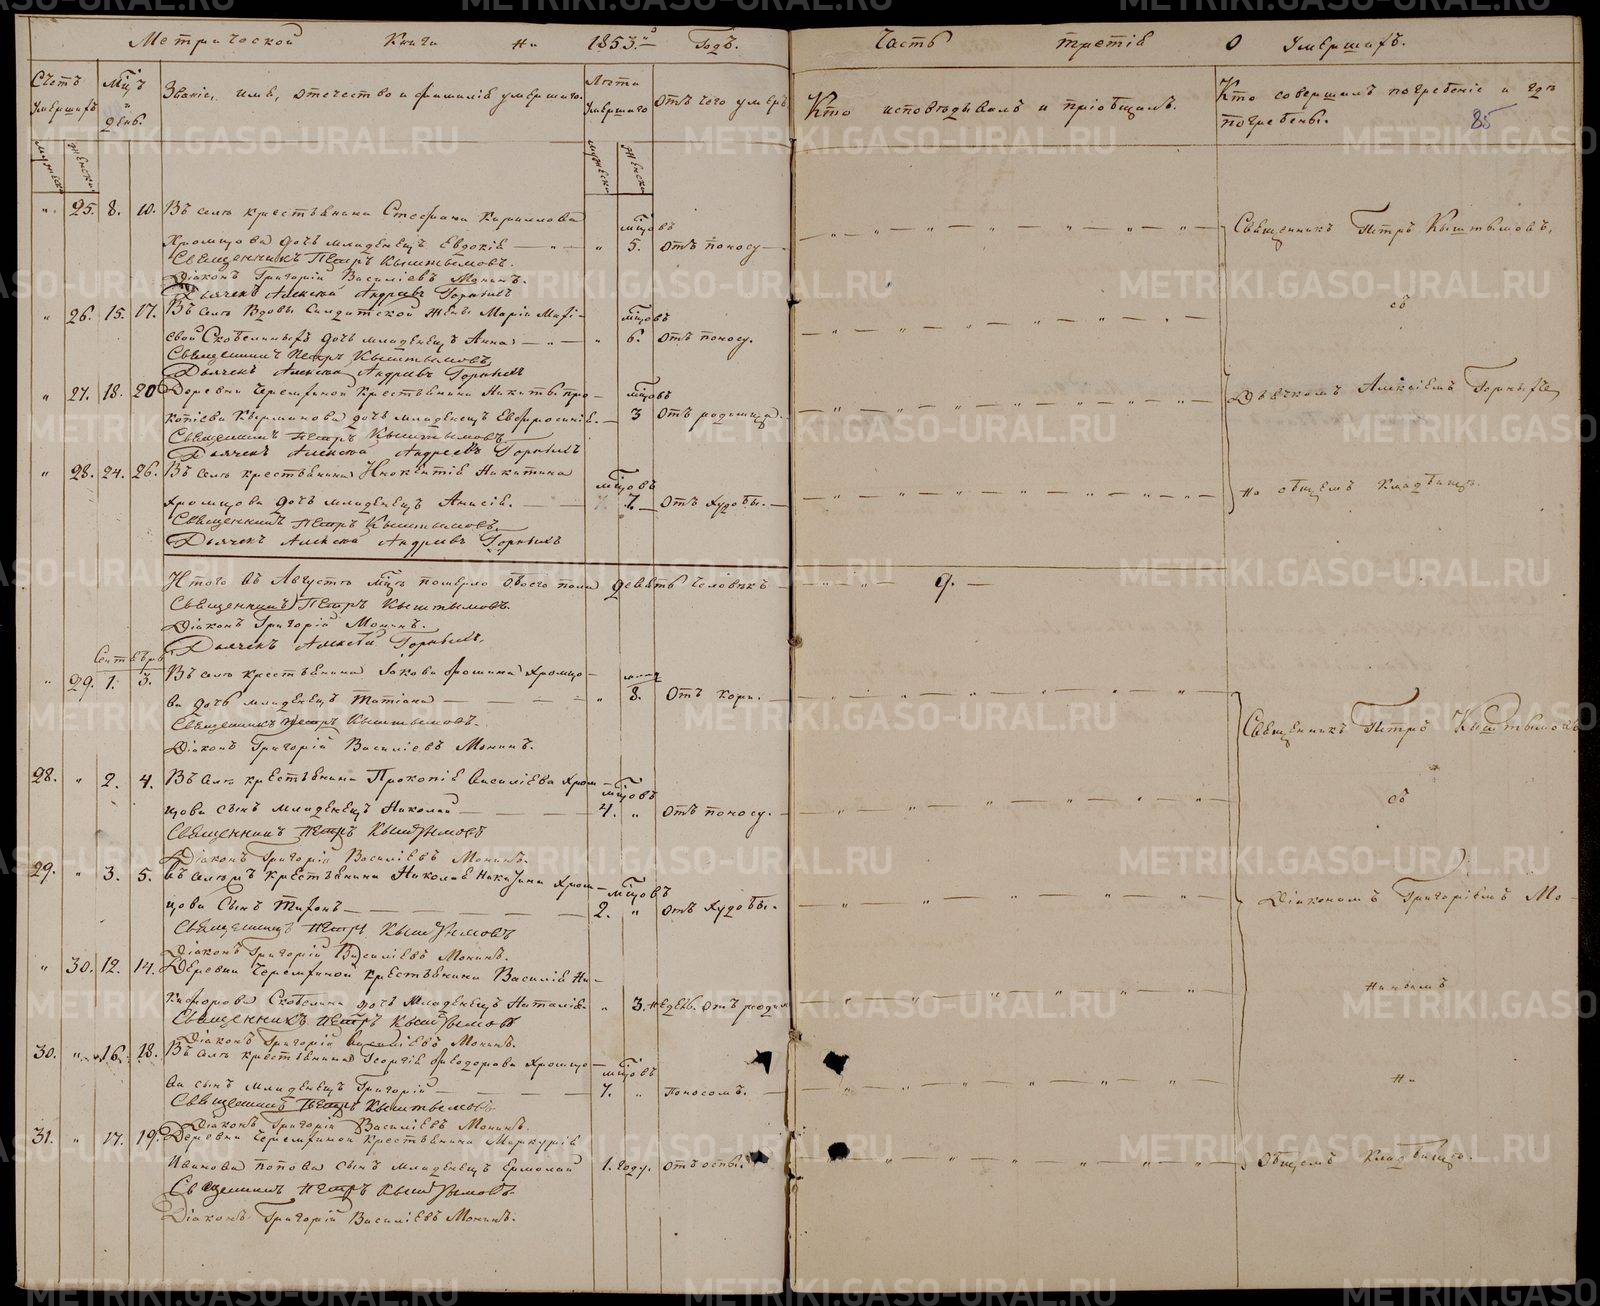 Метрической Книги на 1853.й Годъ.
Часть третія о Умершихъ.
Счетъ Умершихъ
Мѣц. и день.
Званіе, имя, отечество и фамилія умершаго.
Лѣта Умершаго
Отъ чего умеръ
Кто исповѣдывалъ и пріобщалъ.
Кто совершалъ погребеніе и гдѣ погребены.
85
мужеска женска
мужеска женска
„ 25. 8. 10. Въ селѣ крестьянина Стефана Кириллова
Хромцова дочь младенецъ Евдокія — „ мѣцовъ 5. отъ поносу
Священникъ Петръ Кыштымовъ.
Діаконъ Григорій Василіевъ Монинъ.
Дьячекъ Алексѣй Андреевъ Горныхъ
Священникъ Петръ Кыштымовъ,
„ 26. 15. 17. Въ селѣ Вдовы Солдатской жены Маріи
Скобелиныхъ дочь младенецъ Анна — „ мѣцовъ 6. отъ поносу.
Священникъ Петръ Кыштымовъ
Дьячекъ Алексѣй Андреевъ Горныхъ
съ
„ 27. 18. 20 Деревни Черемхиной Крестьянина Никиты Про-
копіева дочь младенецъ Евфросинія — мѣцовъ 3 отъ родимца.
Священникъ Петръ Кыштымовъ
Дьячекъ Алексѣй Андреевъ Горныхъ
Дьячкомъ Алексіемъ Горныхъ
„ 28. 24. 26. Въ селѣ крестьянина Инокентія Никитина
Хромцова дочь младенецъ Анисія. — мѣцовъ 7. отъ худобы.
Священникъ Петръ Кыштымовъ
Дьячекъ Алексѣй Андреевъ Горныхъ
на общемъ кладбищѣ.
Итого въ Августѣ мѣцѣ померло обоего пола девять человѣкъ — „ — „ — 9. —
Священникъ Петръ Кыштымовъ.
Діаконъ Григорій Монинъ.
Дьячекъ Алексѣй Горныхъ.
Сентябрь
„ 29. 1. 3. Въ селѣ крестьянина Іакова Фомина Хромцо-
ва дочь младенецъ Татіана — „ 8. Отъ кори.
Священникъ Петръ Кыштымовъ.
Діаконъ Григорій Василіевъ Монинъ.
Священникъ Петръ Кыштымовъ
28. „ 2. 4. Въ селѣ крестьянина Прокопія Василіева Хром-
цова сынъ младенецъ Николай — мѣцовъ 4. „ отъ поносу.
Священникъ Петръ Кыштымовъ
Діаконъ Григорій Василіевъ Монинъ.
съ
29. „ 3. 5. Въ селѣ крестьянина Николая Никитина Хром-
цова Сынъ Тихонъ — мѣцовъ 2. „ отъ худобы.
Священникъ Петръ Кыштымовъ
Діаконъ Григорій Василіевъ Монинъ.
Діакономъ Григоріемъ Мо-
„ 30. 12. 14. Деревни Черемхиной крестьянина Василія Ни-
кифорова Скобелина дочь младенецъ Наталія. „ 3. недѣль. отъ родим
Священникъ Петръ Кыштымовъ
Діаконъ Григорій Василіевъ Монинъ.
нинымъ
30. „ 16. 18. Въ селѣ крестьянина Георгія Феодорова Хромцо-
ва сынъ младенецъ Григорій — мѣцовъ 7. „ поносомъ.
Священникъ Петръ Кыштымовъ
Діаконъ Григорій Василіевъ Монинъ.
на
31. „ 17. 19. Деревни Черемхиной крестьянина Меркурія
Иванова Попова сынъ младенецъ Ермолай 1. году. отъ оспы.
Священникъ Петръ Кыштымовъ.
Діаконъ Григорій Василіевъ Монинъ.
общемъ кладбищѣ.
METRIKI.GASO-URAL.RU